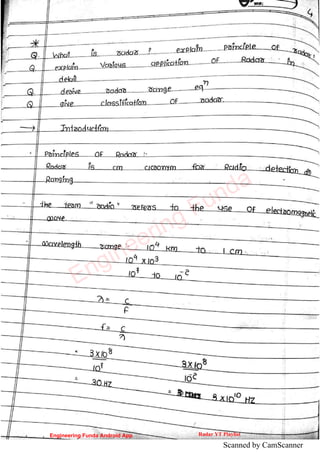 4
*
Q What is radar ? explain principle of radar.
Q explain Various application of Radar in
detail
Q derive radar range eqⁿ
Q give classification of radar.
→ Introduction
- Principles OF Radar :-
Radar is an acronym for Radio detection
Ranging
- the team "radio" referes to the use of electromagnetic
wave
- wavelength range 10⁴ Km to 1 cm
10⁴ X 10³
10⁷ to 10⁻²
λ = C
F
f = C
λ
= 3X10⁸ 3X10⁸
10⁷ 10⁻²
= 30 HZ = 3X10¹⁰ HZ
Engineering Funda
Engineering Funda Android App Radar YT Playlist
Scanned by CamScanner